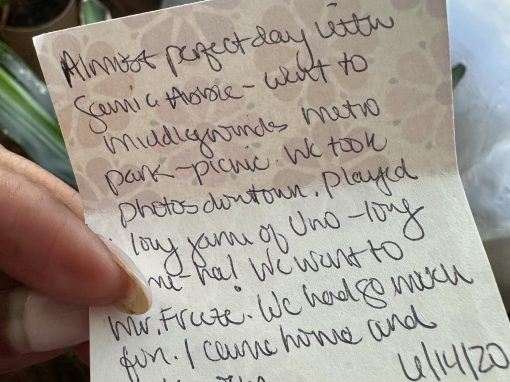 Almost perfect day with
Jamie & Abbie - went to
Middlegrounds Metro
park - picnic. We took
photos downtown. Played
long game of Uno - long
me - ha! We went to
Mr. Freeze. We had so much
fun. I came home and
6/14/20